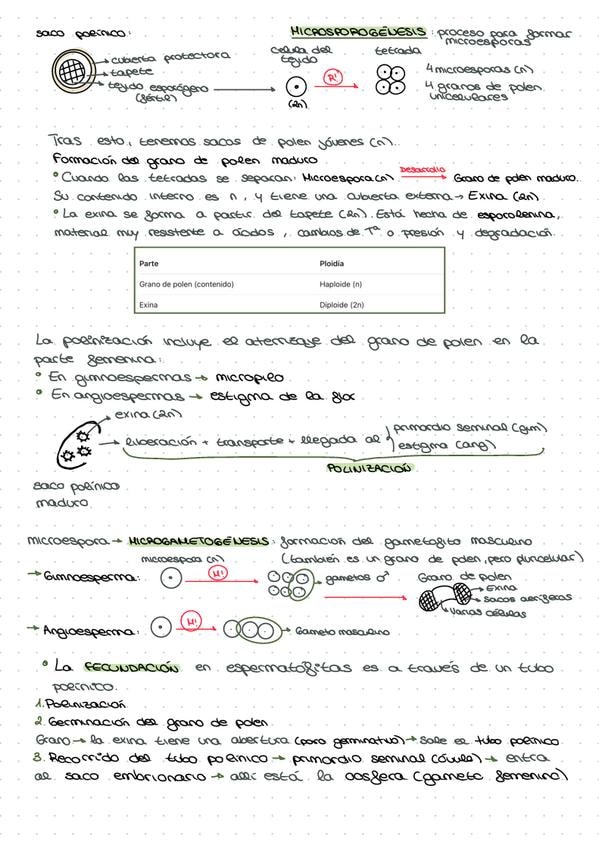 saco polínico:
MICROSPOROGÉNESIS: proceso para formar
microesporas
cubierta protectora
tapete
tejido esporógeno
(fértil)
célula del
tejido
tetrada
(2n)
R!
4 microesporas (n)
4 granos de polen
unicelulares
Tras esto, tenemos sacos de polen jóvenes (n).
Formación del grano de polen maduro
• Cuando las tetradas se separan: Microespora (n) Desarrollo → Grano de polen maduro.
Su contenido interno es n, y tiene una cubierta externa → Exina (2n)
• La exina se forma a partir del tapete (2n). Está hecha de esporolenina,
material muy resistente a ácidos, cambios de Tª o presión y degradación.
Parte Ploidía
Grano de polen (contenido) Haploide (n)
Exina Diploide (2n)
La polinización incluye el aterrizaje del grano de polen en la
parte femenina:
• En gimnospermas → micropilo
• En angiospermas → estigma de la flor
exina (2n)
liberación + transporte + llegada al
primordio seminal (gim)
estigma (ang)
POLINIZACIÓN
saco polínico
maduro
microespora → MICROGAMETOGÉNESIS: formación del gametofito masculino
(también es un grano de polen, pero pluricelular)
microespora (n)
→ Gimnosperma: M! gametos ♂
Grano de polen
exina
sacos aeríferos
varias células
→ Angiosperma: M! Gameto masculino
• La FECUNDACIÓN en espermatofitas es a través de un tubo
polínico.
1. Polinización
2. Germinación del grano de polen
Grano → la exina tiene una abertura (poro germinativo) → Sale el tubo polínico
3. Recorrido del tubo polínico → primordio seminal (óvulo) → entra
al saco embrionario → allí está la oosfera (gameto femenino)